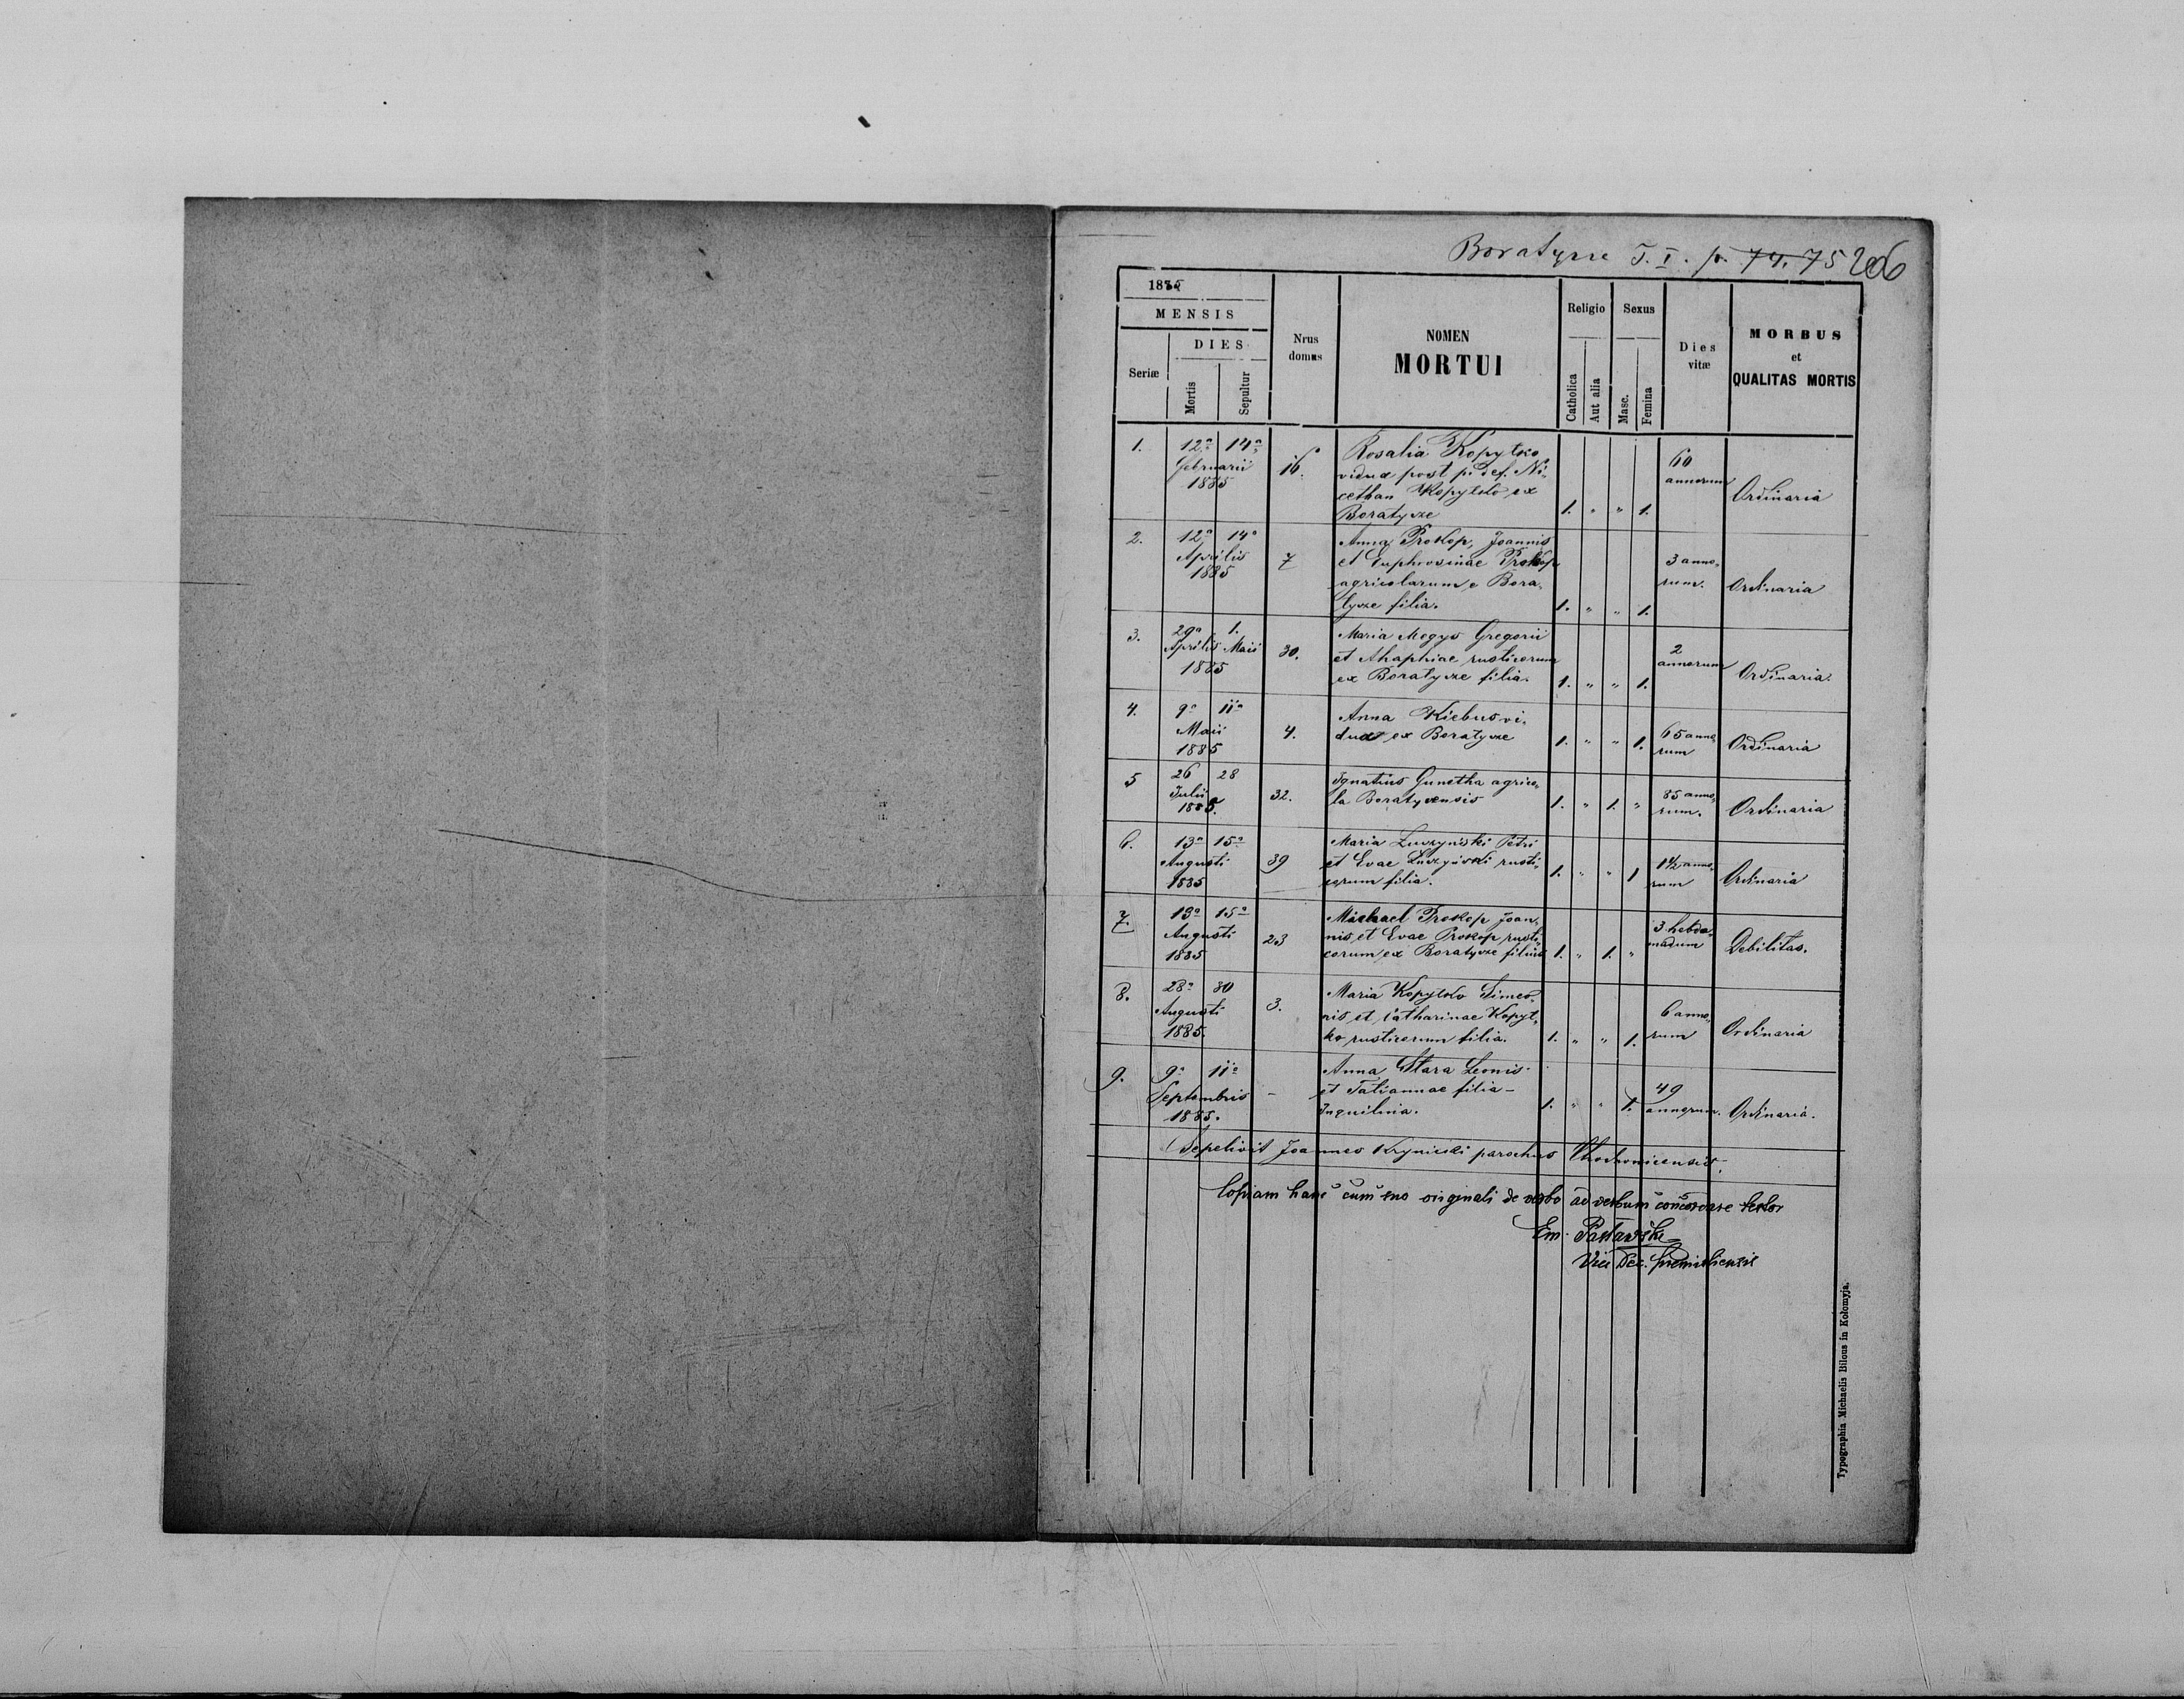 Boratysze T. I. p. 74. 75 206
1885
MENSIS
DIES
Seriæ
Mortis
Sepultur
Nrus
domus
NOMEN
MORTUI
Religio
Catholica
Aut alia
Sexus
Masc.
Femina
Dies
vitæ
MORBUS
et
QUALITAS MORTIS
1. 12a 14a
Februarii
1885
16.
Rosalia Kopytko
vidua post p. def. Ni-
cethan Kopytko ex
Boratysze
1. " " 1.
60
annorum
Ordinaria
2. 12a 14a
Aprilis
1885
7
Anna Prokop, Joannis
et Euphrosinae Prokop
agricolarum e Bora-
tysze filia.
1. " " 1.
3 anno-
rum.
Ordinaria
3. 29a 1.
Aprilis Maii
1885
30.
Maria Megys Gregorii
et Ahaphiae rusticorum
ex Boratysze filia.
1. " " 1.
2
annorum
Ordinaria.
4. 9a 11a
Maii
1885
4.
Anna Kiebus vi-
dua ex Boratysze
1. " " 1.
65 anno-
rum
Ordinaria
5 26 28
Julii
1885.
32.
Ignatius Gunetka agrico-
la Boratycensis
1. " 1. "
85 anno-
rum.
Ordinaria
6. 13a 15a
Augusti
1885
39
Maria Luszyński Petri
et Evae Luszyński rusti-
corum filia.
1. " " 1
1 1/2 anno-
rum
Ordinaria
7. 13a 15a
Augusti
1885
23
Michael Prokop Joan-
nis et Evae Prokop rusti-
corum ex Boratysze filius
1. " 1. "
3 hebdo-
madum
Debilitas.
8. 28a 30
Augusti
1885.
3.
Maria Kopytko Simeo-
nis et Catharinae Kopyt-
ko rusticorum filia.
1. " " 1.
6 anno-
rum
Ordinaria
9. 9a 11a
Septembris
1885.
-
Anna Stara Leonis
et Tatiannae filia -
Inquilina.
1. " " 1.
49
annorum.
Ordinaria.
Sepelivit Joannes Krynicki parochus
Copiam hanc cum suo originali de verbo ad verbum concordare testor
Em.
Vice Dec. Premisliensis
Typographia Michaelis Bilous in Kołomyja.